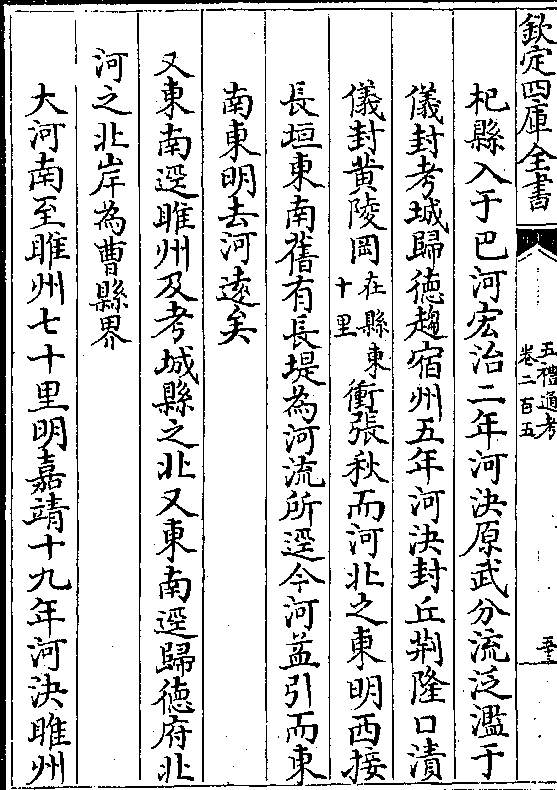 欽定四庫全書
五禮通考
卷二百五
杞縣入于巴河宏治二年河決原武分流泛濫于
儀封考城歸德趨宿州五年河決封丘荆隆口潰
儀封黄陵岡在縣東十里衝張秋而河北之東明西接
長垣東南舊有長堤為河流所逕今河益引而東
南東明去河逺矣
又東南逕睢州及考城縣之北又東南逕歸德府北
河之北岸為曹縣界
大河南至睢州七十里明嘉靖十九年河決睢州